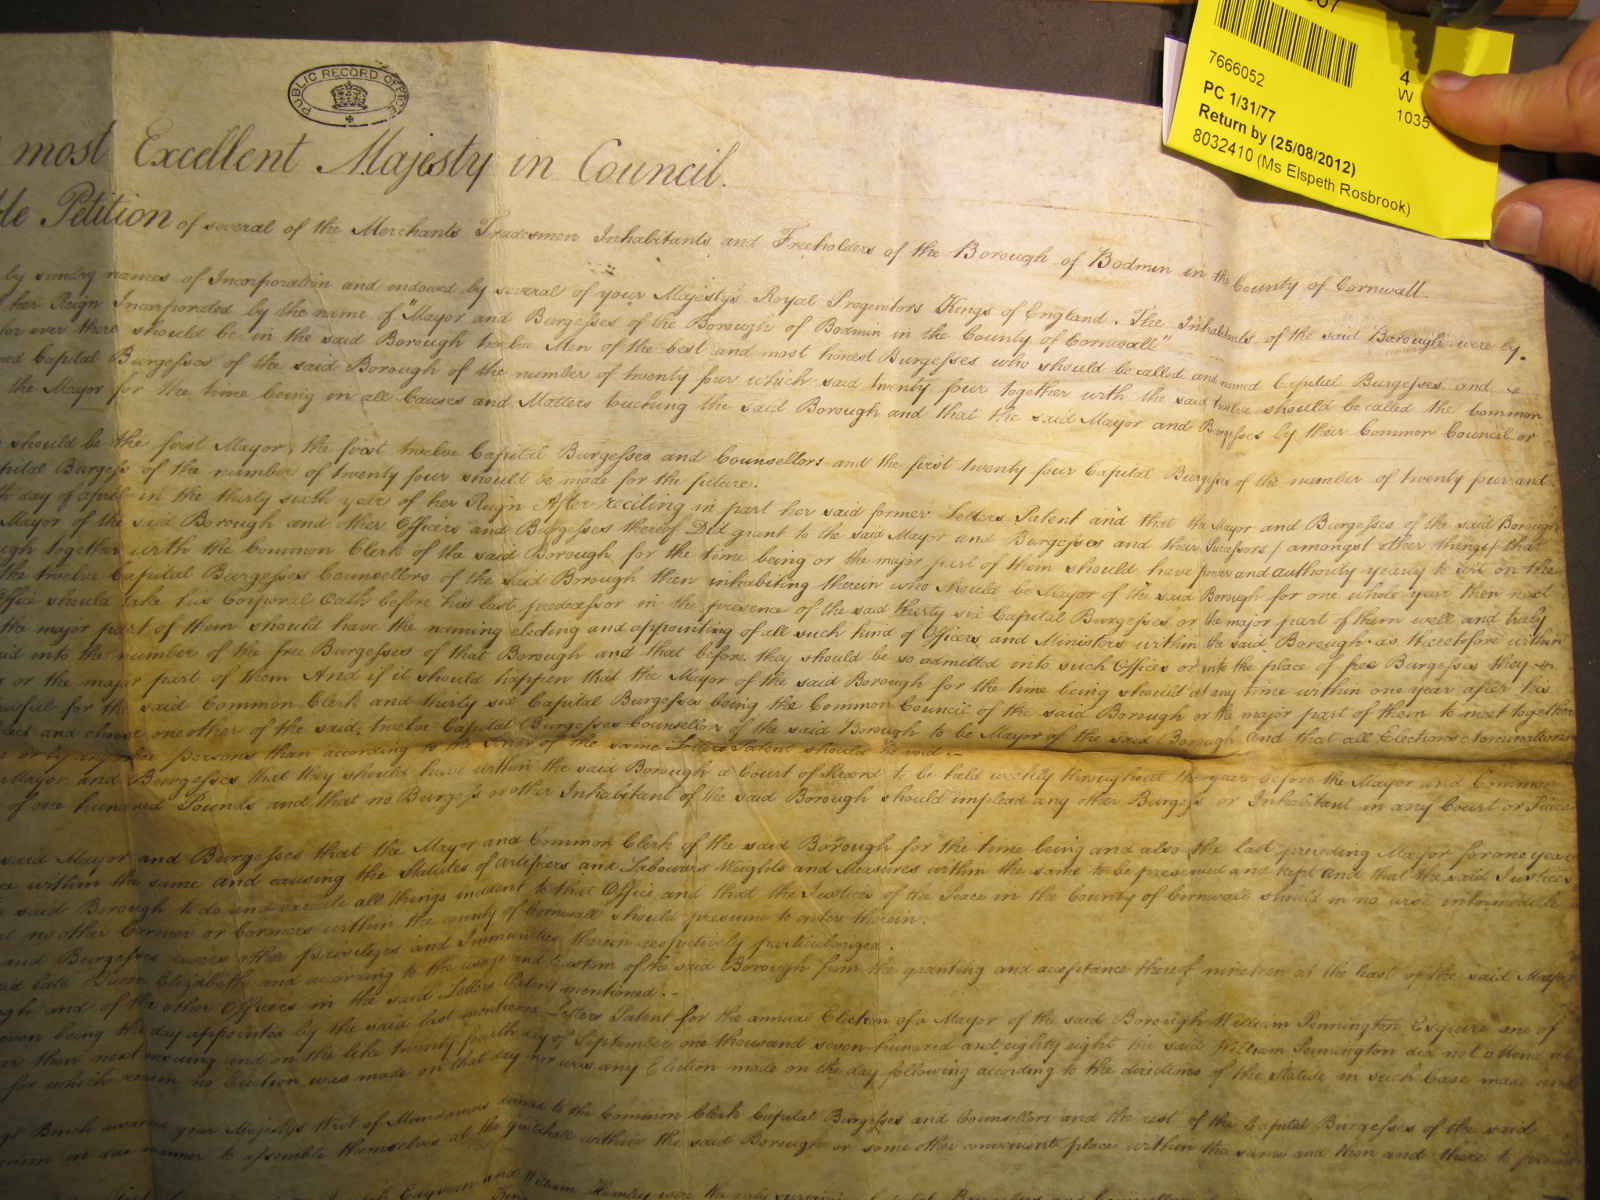 PUBLIC RECORD OFFICE
7666052
4
W
1035
PC 1/31/77
Return by (25/08/2012)
8032410 (Ms Elspeth Rosbrook)
most Excellent Majesty in Council.
Petition of several of the Merchants Tradesmen Inhabitants and Freeholders of the Borough of Bodmin in the County of Cornwall
by sundry names of Incorporation and endowed by several of your Majestys Royal Progenitors Kings of England. The Inhabitants of the said Borough were by
her Reign Incorporated by the name of "Mayor and Burgesses of the Borough of Bodmin in the County of Cornwall"
for ever there should be in the said Borough twelve Men of the best and most honest Burgesses who should be called and named Capital Burgesses and
Capital Burgesses of the said Borough of the number of twenty four which said twenty four together with the said twelve should be called the Common
the Mayor for the time being in all Causes and Matters touching the said Borough and that the said Mayor and Burgesses by their Common Council or
should be the first Mayor, the first twelve Capital Burgesses and Counsellors and the first twenty four Capital Burgesses of the number of twenty four and
Burgess of the number of twenty four should be made for the future.
day of April in the thirty sixth year of her Reign After reciting in part her said former Letters Patent and that the Mayor and Burgesses of the said Borough
Mayor of the said Borough and other Officers and Burgesses thereof Did grant to the said Mayor and Burgesses and their Successors (amongst other things) that
together with the Common Clerk of the said Borough for the time being or the major part of them should have power and authority yearly to on the
the twelve Capital Burgesses Counsellors of the said Borough then inhabiting therein who should be Mayor of the said Borough for one whole year then next
Office should take his Corporal Oath before his last predecessor in the presence of the said thirty six Capital Burgesses or the major part of them well and truly
the major part of them should have the naming electing and appointing of all such kind of Officers and Ministers within the said Borough as heretofore within
into the number of the free Burgesses of that Borough and that before they should be so admitted into such Offices or into the place of free Burgesses they
or the major part of them And if it should happen that the Mayor of the said Borough for the time being should at any time within one year after his
for the said Common Clerk and thirty six Capital Burgesses being the Common Council of the said Borough or the major part of them to meet together
and choose one other of the said twelve Capital Burgesses Counsellors of the said Borough to be Mayor of the said Borough And that all Elections Nominations
or by any other persons than according to the tenor of the same Letters Patent should be void.
Mayor and Burgesses that they should have within the said Borough a Court of Record to be held weekly throughout the year before the Mayor and Common
of one hundred Pounds and that no Burgess or other Inhabitant of the said Borough should implead any other Burgess or Inhabitant in any Court or Place
said Mayor and Burgesses that the Mayor and Common Clerk of the said Borough for the time being and also the last preceding Mayor for one year
within the same and causing the Statutes of Artificers and Labourers Weights and Measures within the same to be preserved and kept And that the said Justices
said Borough to do and execute all things incident to that Office and that the Justices of the Peace in the County of Cornwall should in no wise intermeddle
no other Coroner or Coroners within the County of Cornwall should presume to enter therein.
and Burgesses divers other privileges and Immunities therein respectively particularized.
late Queen Elizabeth and according to the usage and Custom of the said Borough from the granting and acceptance thereof nineteen at the least of the said Mayor
and of the other Officers in the said Letters Patent mentioned.
being the day appointed by the said last mentioned Letters Patent for the annual Election of a Mayor of the said Borough William Pennington Esquire one of
then next ensuing and on the like twenty fourth day of September one thousand seven hundred and eighty eight the said William Pennington did not attend at
for which reason no Election was made on that day nor was any Election made on the day following according to the directions of the Statute in such Case made and
Bench awarded your Majestys Writ of Mandamus directed to the Common Clerk Capital Burgesses and Counsellors and the rest of the Capital Burgesses of the said
in due manner to assemble themselves at the Guildhall within the said Borough or some other convenient place within the same and then and there to
and William Hamley were the only